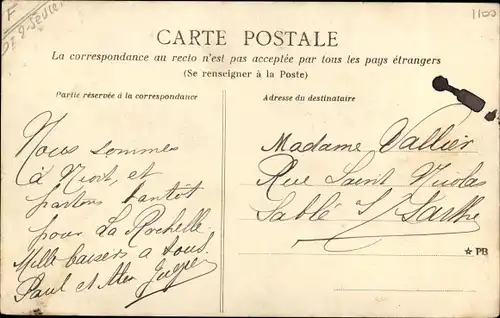 F
1100
CARTE POSTALE
La correspondance au recto n'est pas acceptée par tous les pays étrangers
(Se renseigner à la Poste)
Partie réservée à la correspondance
Adresse du destinataire
Nous sommes
à Niort, et
partons bientôt
pour La Rochelle
Mille baisers a tous
Paul et
Madame Vallier
Rue Saint Nicolas
Sablé S/ Sarthe
★ PB